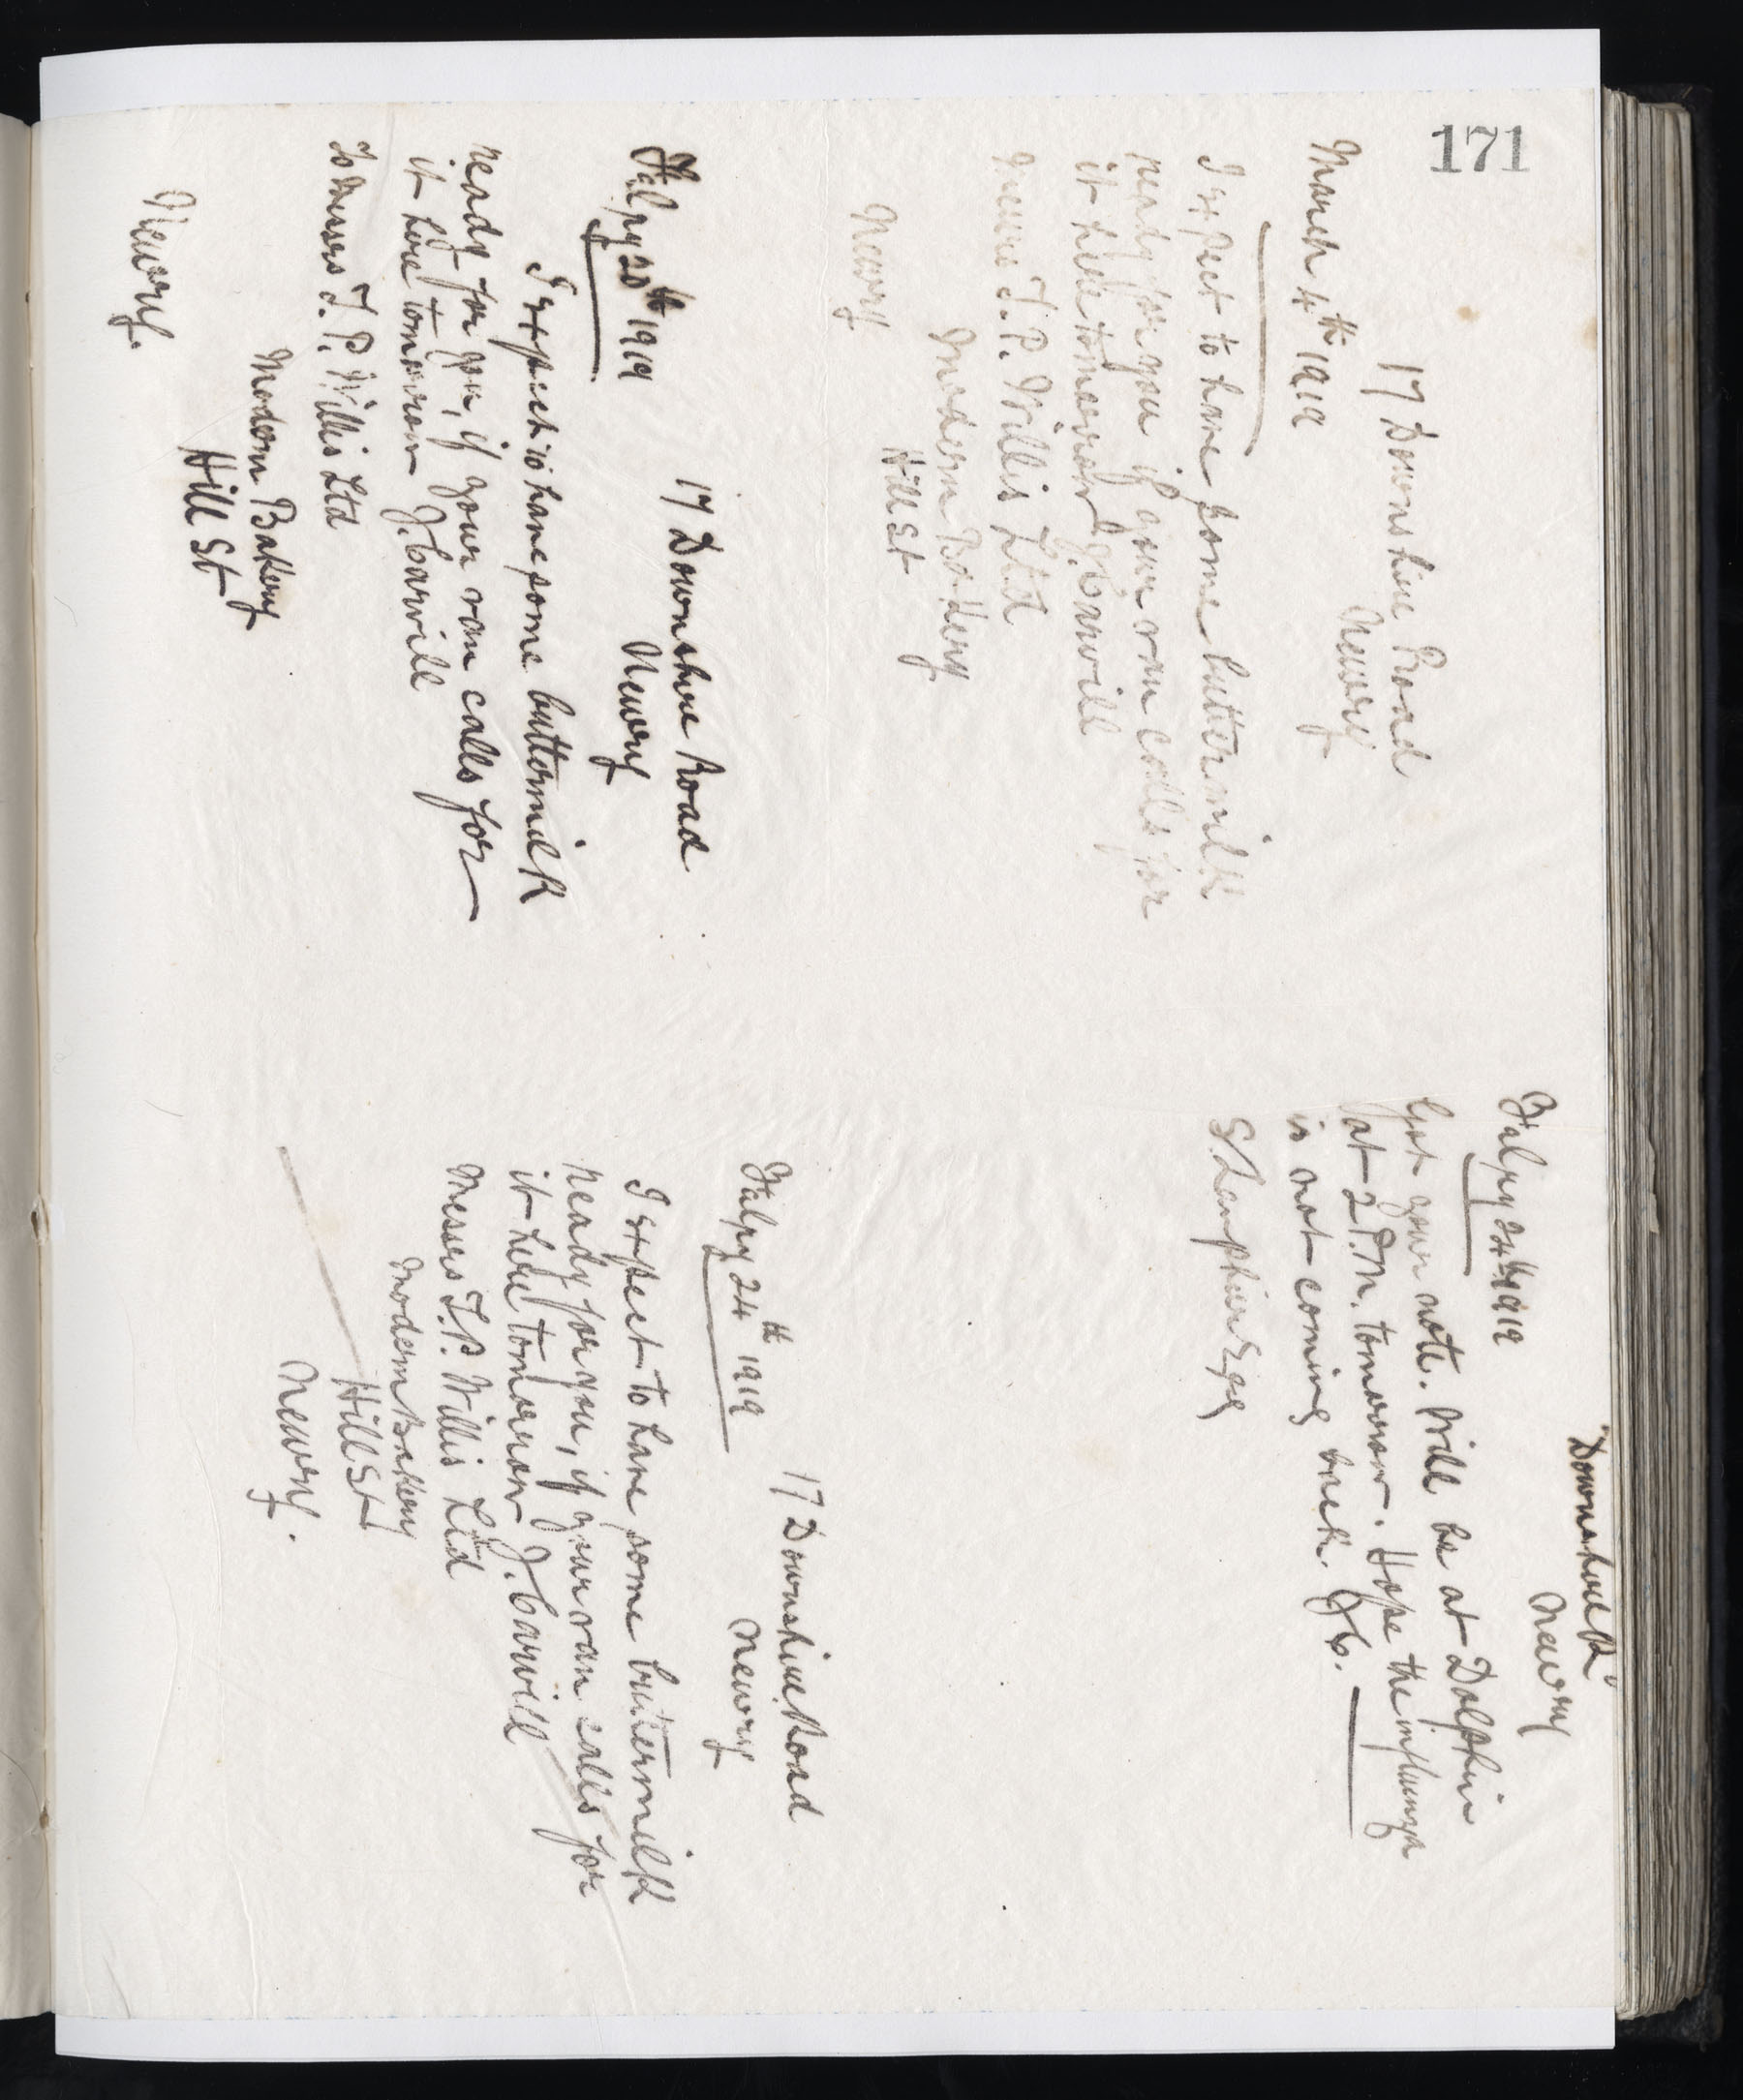 171
17 Downshire Road
Newry
March 4th 1919
I expect to have some buttermilk
ready for you if your van calls for
it here tomorrow J. Carvill
Messrs J. P. Willis Ltd
Modern Bakery
Hill St
Newry
17 Downshire Road
Newry
Febry 20th 1919
I expect to have some buttermilk
ready for you, if your van calls for
it here tomorrow J. Carvill
To Messrs J. P. Willis Ltd
Modern Bakery
Hill St
Newry.
Newry
Febry 24th 1919
Got your note. Will be at Dolphin
at 2 P.M. tomorrow. Hope the influenza
is not coming back. JC.
17 Downshire Road
Newry
Febry 24th 1919
I expect to have some buttermilk
ready for you, if your van calls for
it here tomorrow J. Carvill
Messrs J. P. Willis Ltd
Modern Bakery
Hill St
Newry.